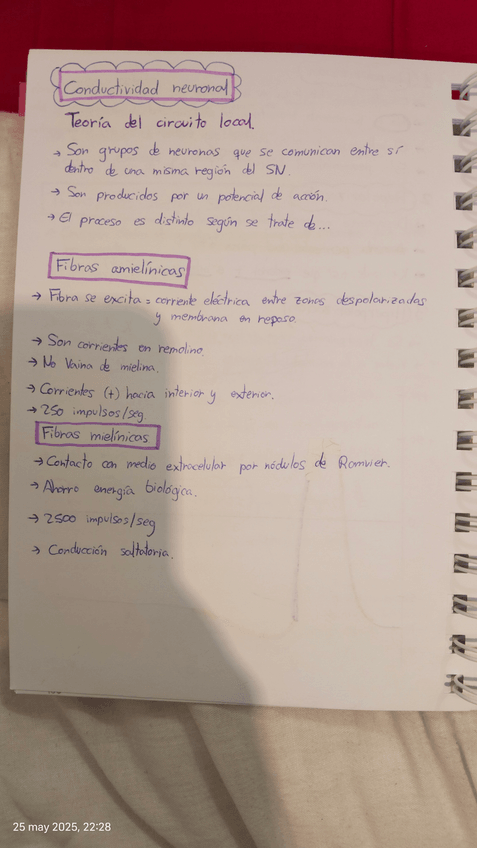 Conductividad neuronal
Teoría del circuito local.
→ Son grupos de neuronas que se comunican entre sí
dentro de una misma región del SN.
→ Son producidos por un potencial de acción.
→ El proceso es distinto según se trate de...
Fibras amielínicas
→ Fibra se excita = corriente eléctrica entre zonas despolarizadas
y membrana en reposo.
→ Son corrientes en remolino.
→ No Vaina de mielina.
→ Corrientes (+) hacia interior y exterior.
→ 250 impulsos/seg
Fibras mielínicas
→ Contacto con medio extracelular por nódulos de Romvier.
→ Ahorro energía biológica.
→ 2500 impulsos/seg
→ Conducción saltatoria.
25 may 2025, 22:28